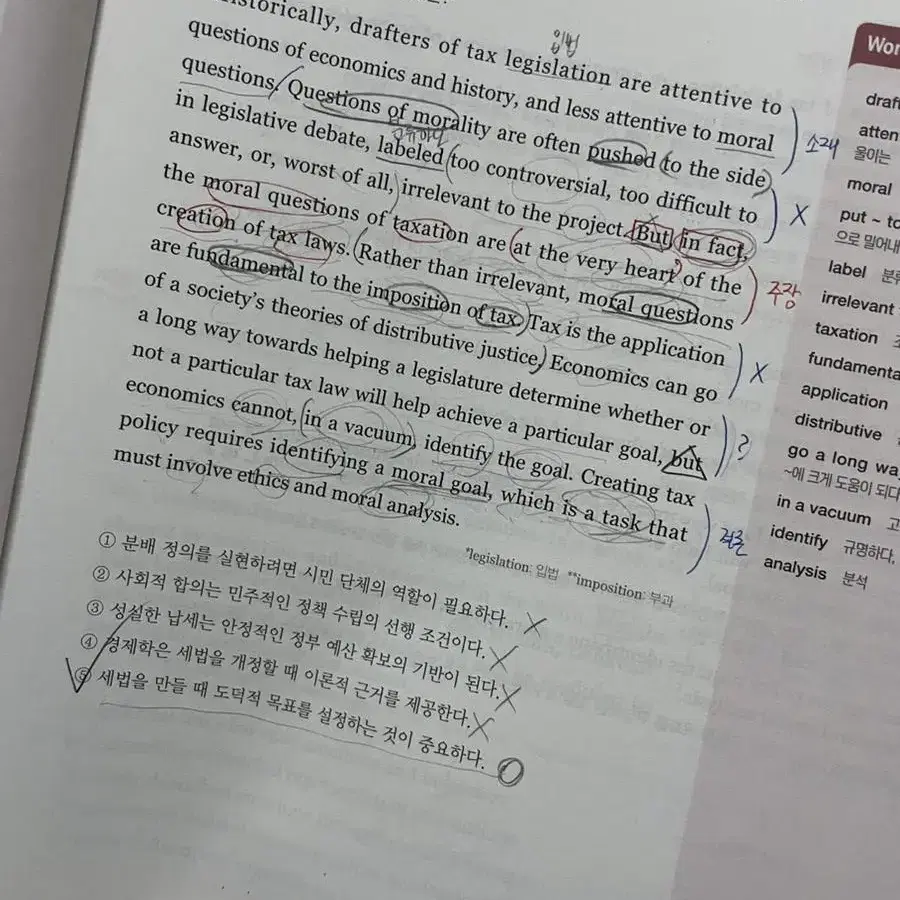 Historically, drafters of tax legislation are attentive to
입법
questions of economics and history, and less attentive to moral
questions. Questions of morality are often pushed to the side
소재
in legislative debate, labeled too controversial, too difficult to
answer, or, worst of all, irrelevant to the project. But in fact,
X
the moral questions of taxation are at the very heart of the
creation of tax laws. Rather than irrelevant, moral questions
주장
are fundamental to the imposition of tax. Tax is the application
of a society's theories of distributive justice. Economics can go
X
a long way towards helping a legislature determine whether or
not a particular tax law will help achieve a particular goal, but
?
economics cannot, in a vacuum, identify the goal. Creating tax
policy requires identifying a moral goal, which is a task that
must involve ethics and moral analysis.
*legislation: 입법 **imposition: 부과
① 분배 정의를 실현하려면 시민 단체의 역할이 필요하다. X
② 사회적 합의는 민주적인 정책 수립의 선행 조건이다. X
③ 성실한 납세는 안정적인 정부 예산 확보의 기반이 된다. X
④ 경제학은 세법을 개정할 때 이론적 근거를 제공한다. X
⑤ 세법을 만들 때 도덕적 목표를 설정하는 것이 중요하다. O
Wor
draf
atten
울이는
moral
put ~ to
으로 밀어내
label 분류
irrelevant
taxation
fundamenta
application
distributive
go a long wa
~에 크게 도움이 되다
in a vacuum 고
identify 규명하다,
analysis 분석